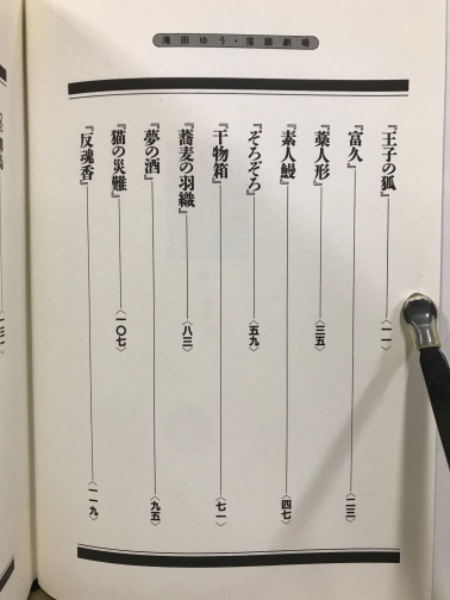 滝田ゆう・落語劇場
『王子の狐』〈一一〉
『富久』〈二三〉
『藁人形』〈三五〉
『素人鰻』〈四七〉
『ぞろぞろ』〈五九〉
『干物箱』〈七一〉
『蕎麦の羽織』〈八三〉
『夢の酒』〈九五〉
『猫の災難』〈一〇七〉
『反魂香』〈一一九〉